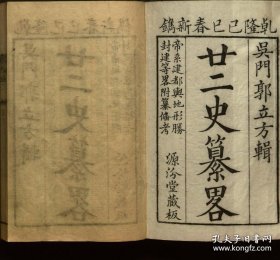 乾隆己巳春新鐫
吳門郭立方輯
廿二史纂畧
帝系建都輿地形勝
封建等畧附纂備考
源汾堂藏板
孔夫子旧书网